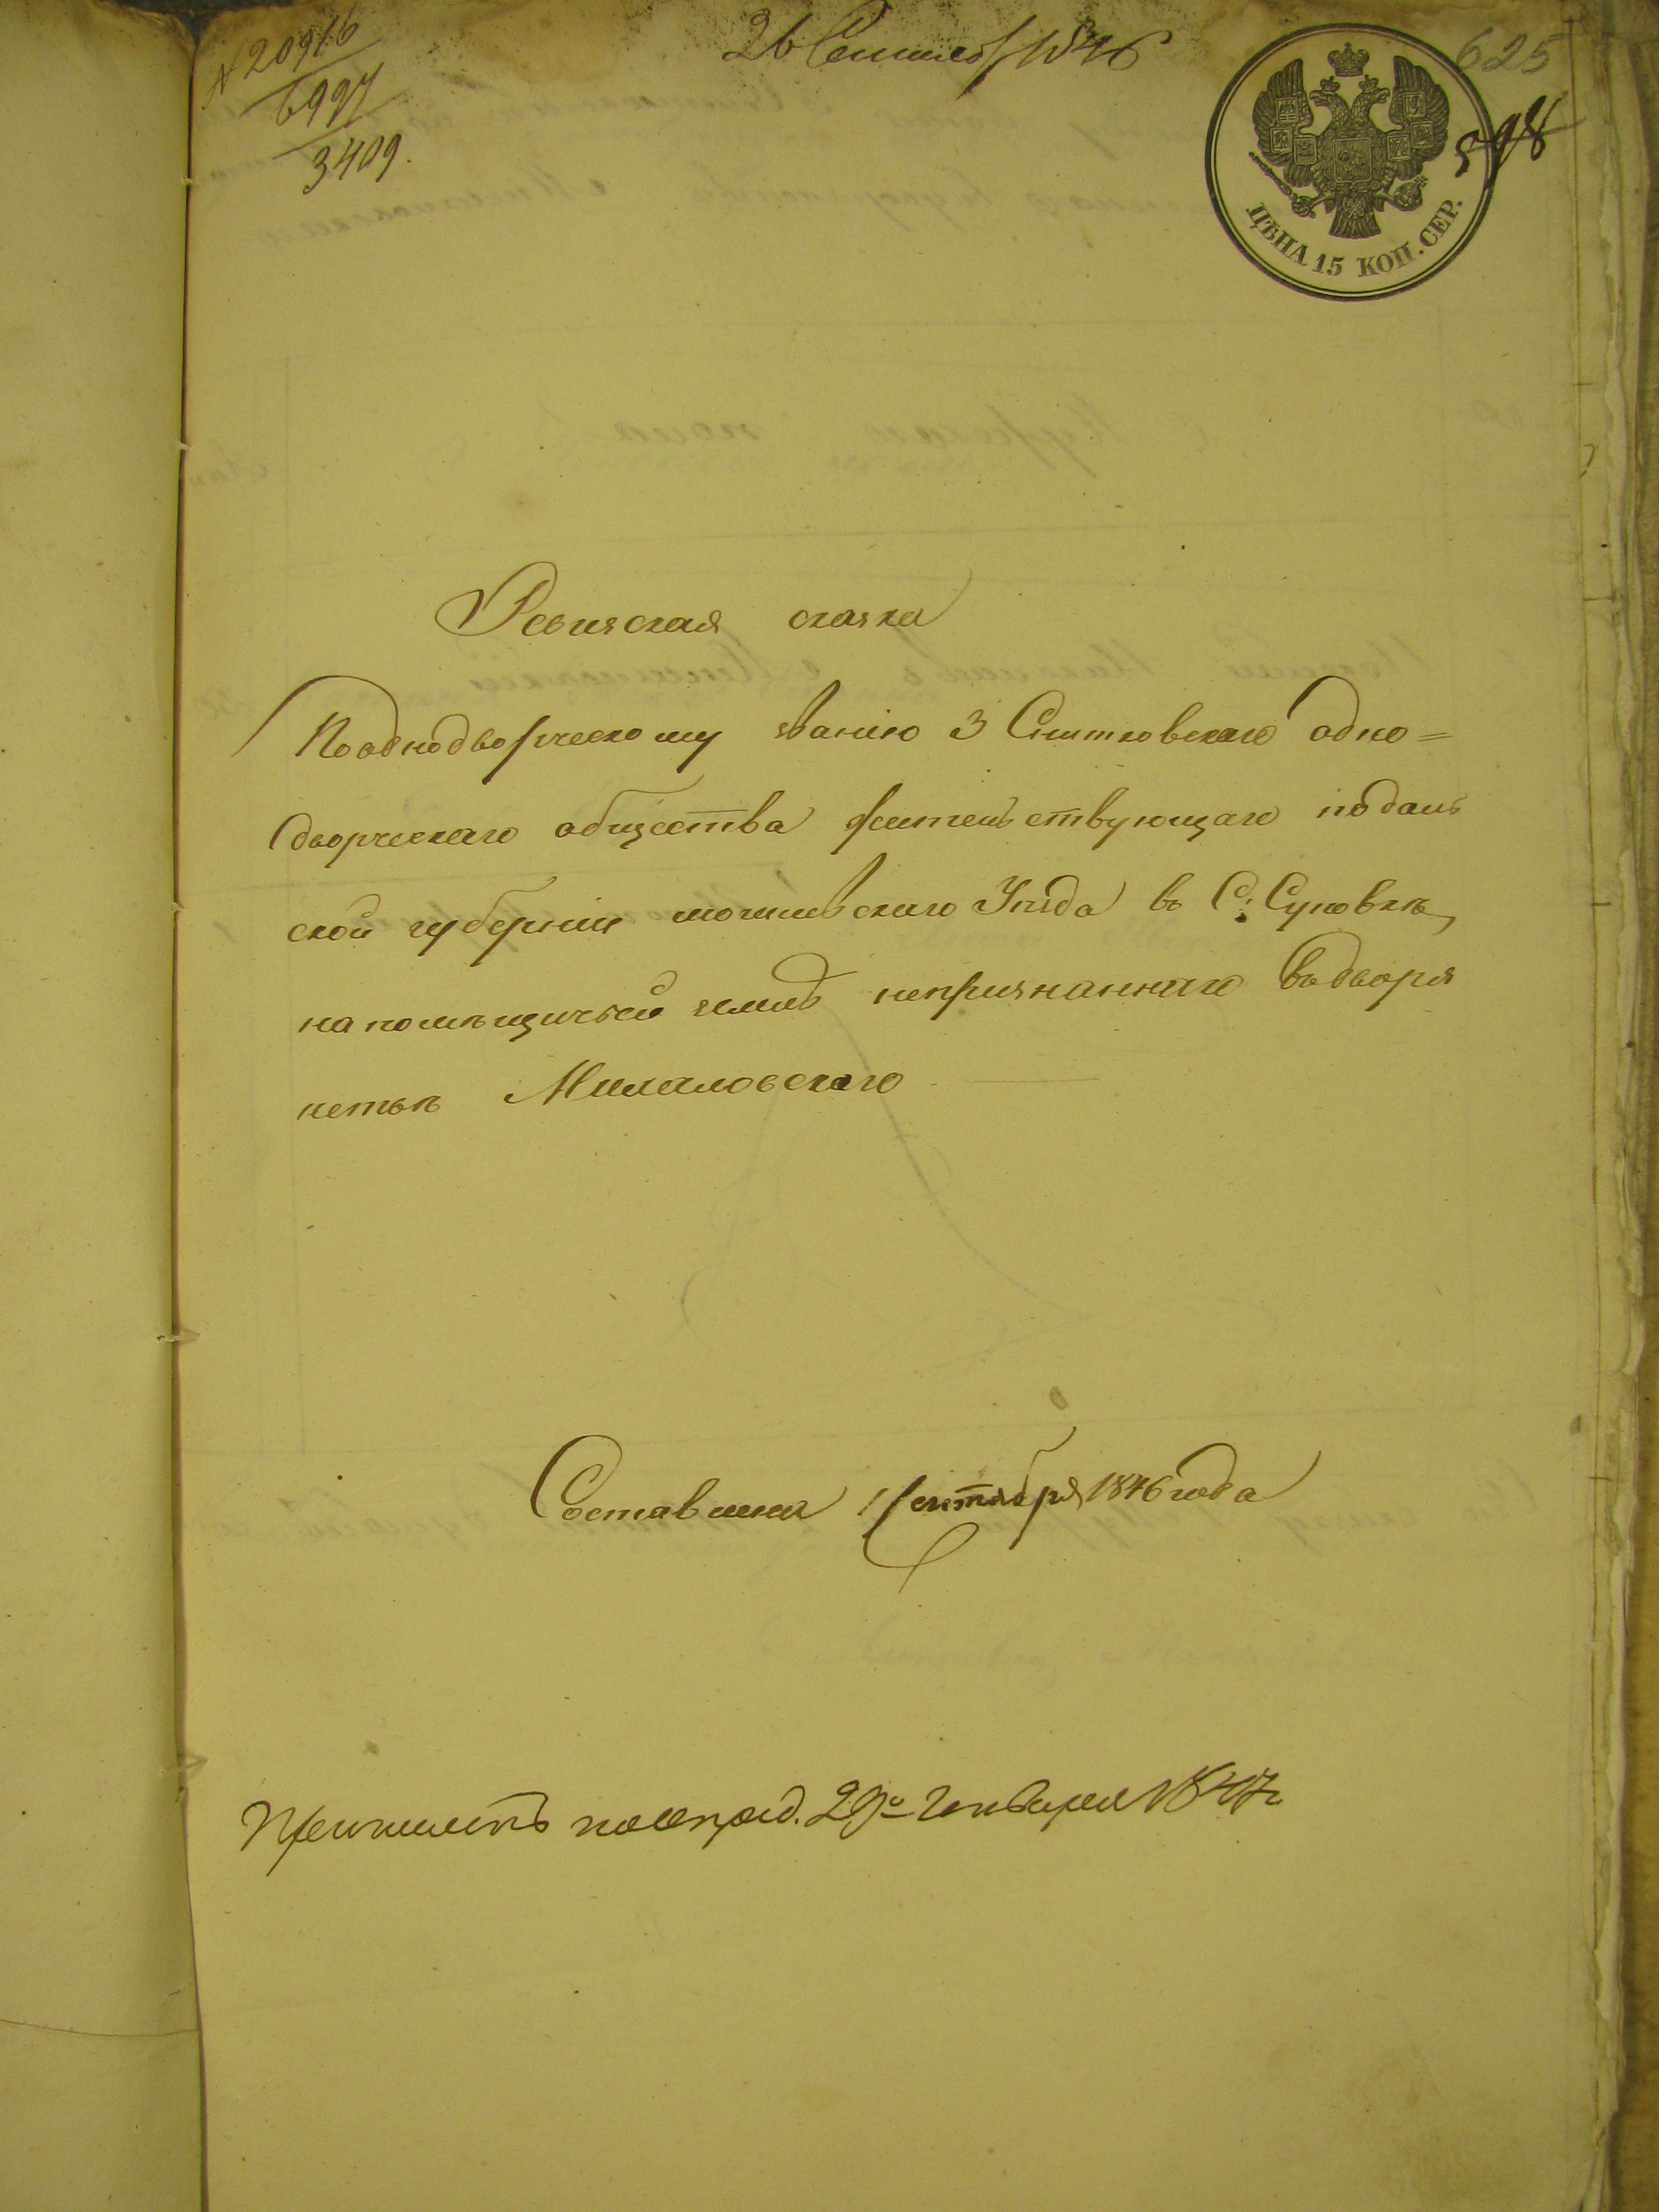 № 20916
6997
3409.
26 Сентяб 1846
625
598
ЦѢНА 15 КОП. СЕР.
Ревизская сказка
По однодворческому званію 3 Снитковскаго одно=
дворческаго общества жительствующаго подоль
ской губерніи могилевскаго Уѣзда въ С: Суповкѣ,
на помѣщичьей землѣ непризнаннаго въ дворя
нствѣ
Составлена 1 сентября 1846 года
29го Генваря 1847г